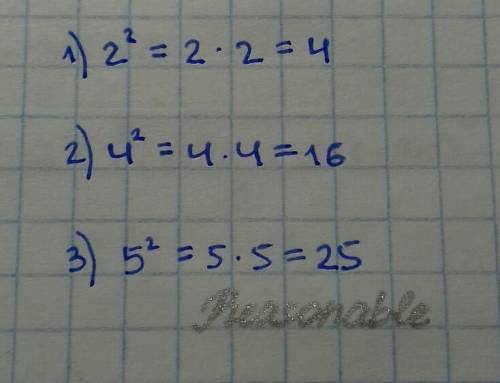 1) 2² = 2 · 2 = 4
2) 4² = 4 · 4 = 16
3) 5² = 5 · 5 = 25
Reasonable